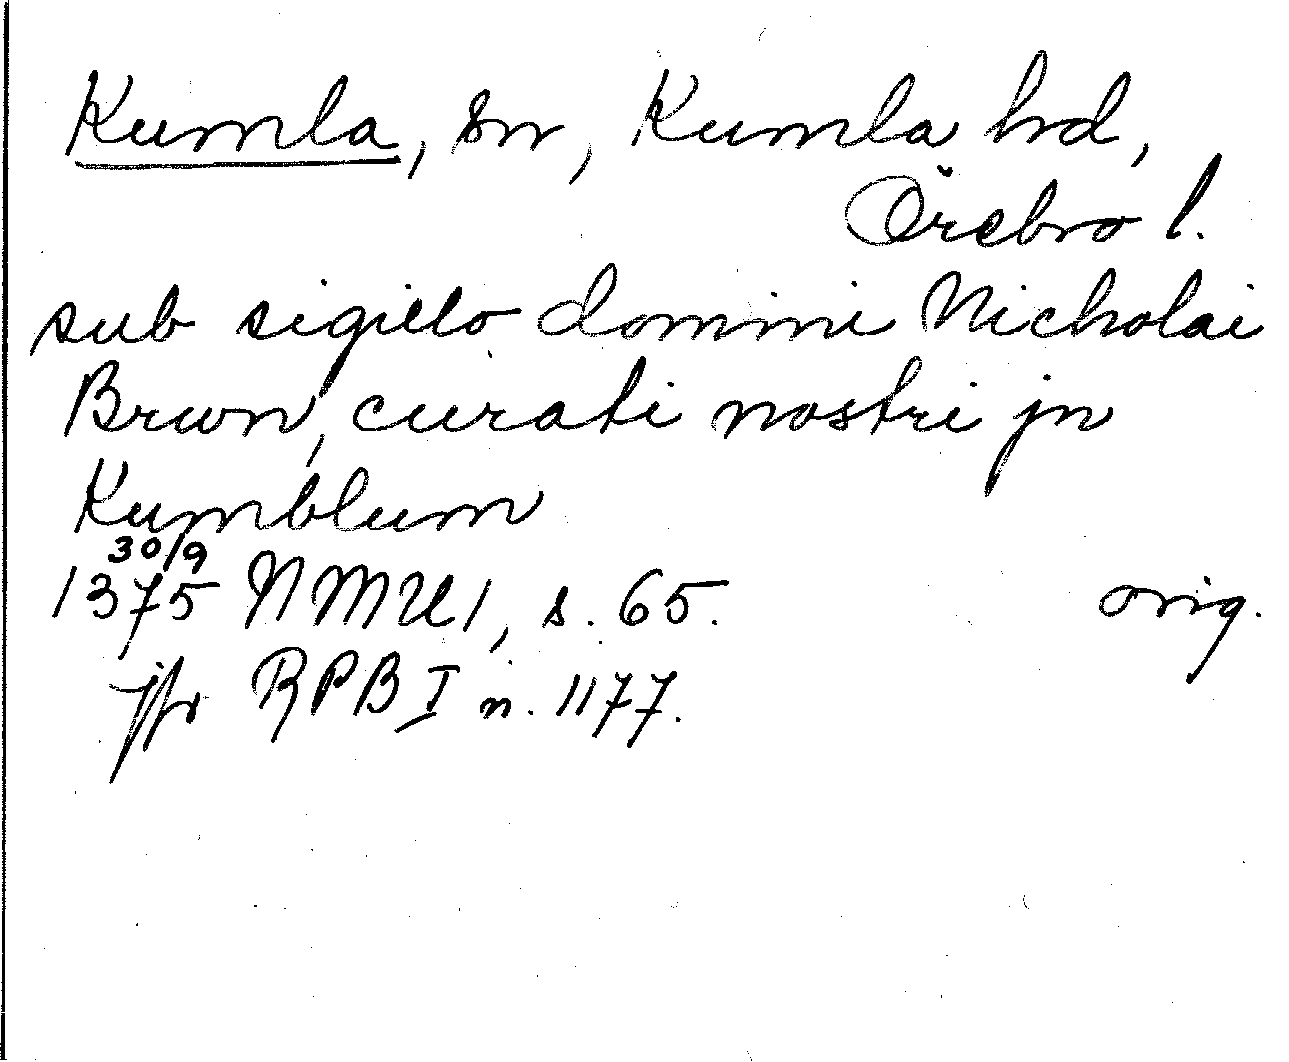 Kumla, sn, Kumla hd,
Örebro l.
sub sigillo domini Nicholai
Brwn, curati nostri jn
Kumblum
30/9
1375 NMU 1, s. 65. orig.
jfr RPB I n. 1177.